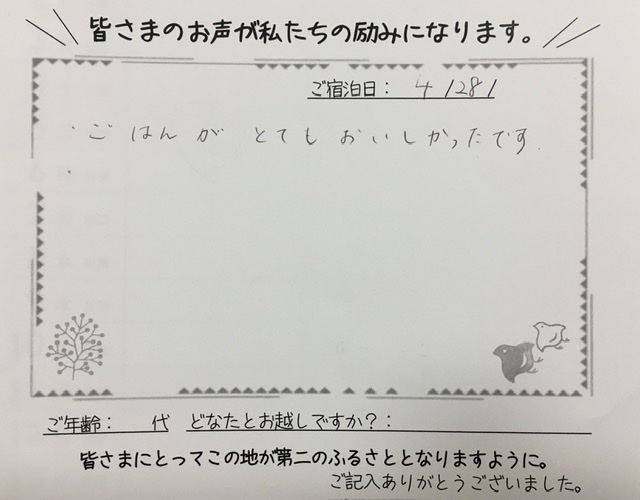 皆さまのお声が私たちの励みになります。
ご宿泊日: 4/28/
・ごはんがとてもおいしかったです.
ご年齢: 代 どなたとお越しですか?:
皆さまにとってこの地が第二のふるさととなりますように。
ご記入ありがとうございました。